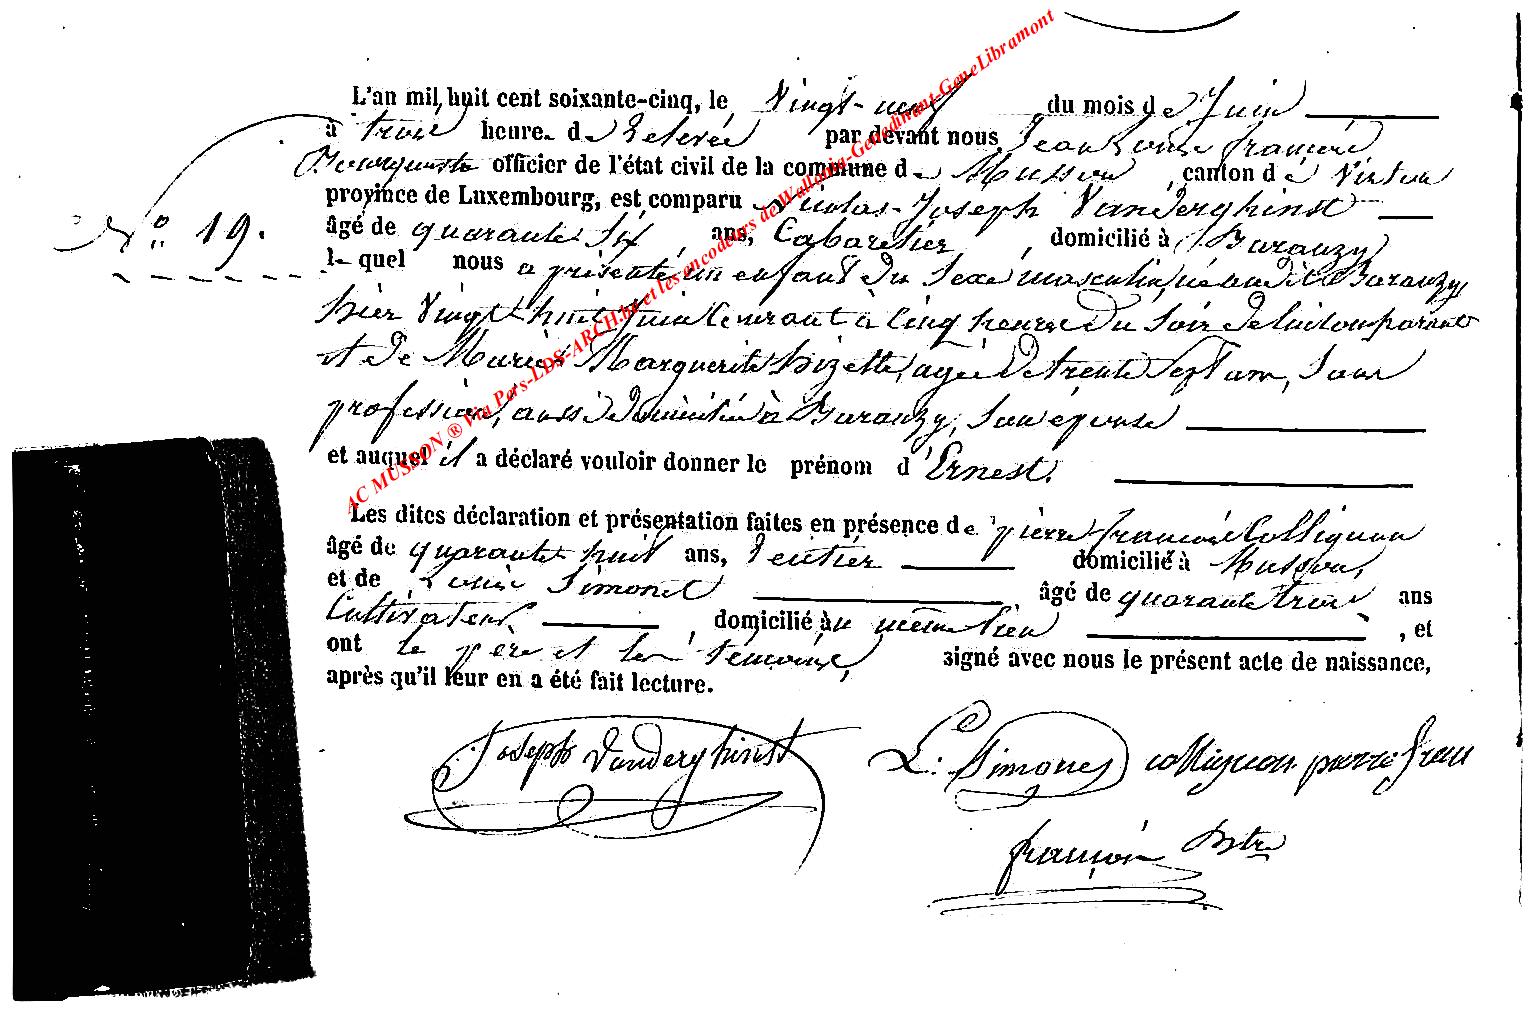 L'an mil huit cent soixante-cinq, le Vingt-neuf du mois de Juin
à trois heure de Relevée par devant nous Jean Louis François
Bourguestre officier de l'état civil de la commune de Musson, canton de Virton
province de Luxembourg, est comparu Nicolas-Joseph Vanderghinst
N° 19.
âgé de quarante six, ans, Cabaretier, domicilié à Baranzy
le quel nous a présenté un enfant du Sexe masculin, né audit Baranzy,
hier Vingt huit Juin Courant à Cinq heures du Soir de lui comparant
et de Marie Marguerite Lizette, agée de trente Sept ans, Sans
profession, aussi domiciliée à Baranzy, Son épouse
et auquel il a déclaré vouloir donner le prénom d'Ernest.
Les dites déclaration et présentation faites en présence de pierre-françois Collignon
âgé de quarante huit ans, Rentier domicilié à Musson,
et de Louis Simonet âgé de quarante trois ans
Cultivateur, domicilié au même lieu, et
ont le père et les témoins, signé avec nous le présent acte de naissance,
après qu'il leur en a été fait lecture.
Joseph Vanderghinst L. Simonet collignon pierre fran
françois
AC MUSSON ® Via Pers-LDS-ARCH.be et les encodeurs de Wallonia-Genedinant-GeneLibramont